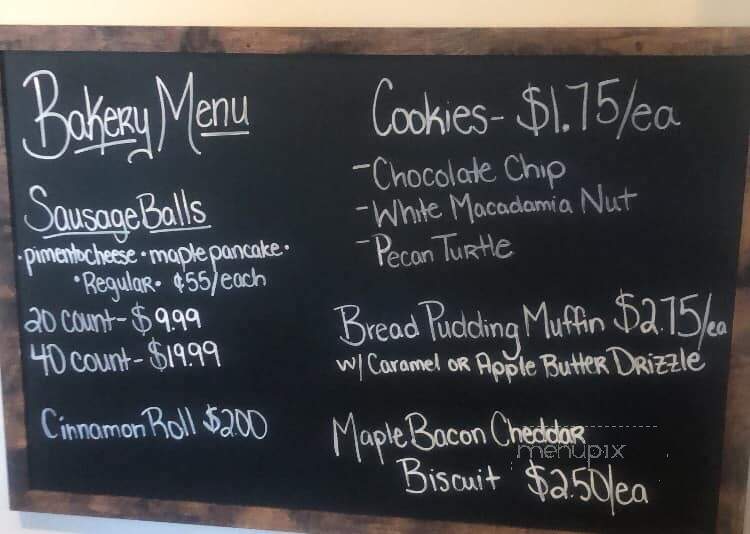 Bakery Menu
Sausage Balls
·pimento cheese·maple pancake·
·Regular· ¢55/each
20 count-$9.99
40 count-$19.99
Cinnamon Roll $2.00
Cookies-$1.75/ea
-Chocolate Chip
-White Macadamia Nut
-Pecan Turtle
Bread Pudding Muffin $2.75/ea
w/ Caramel or Apple Butter Drizzle
Maple Bacon Cheddar
menupix
Biscuit $2.50/ea